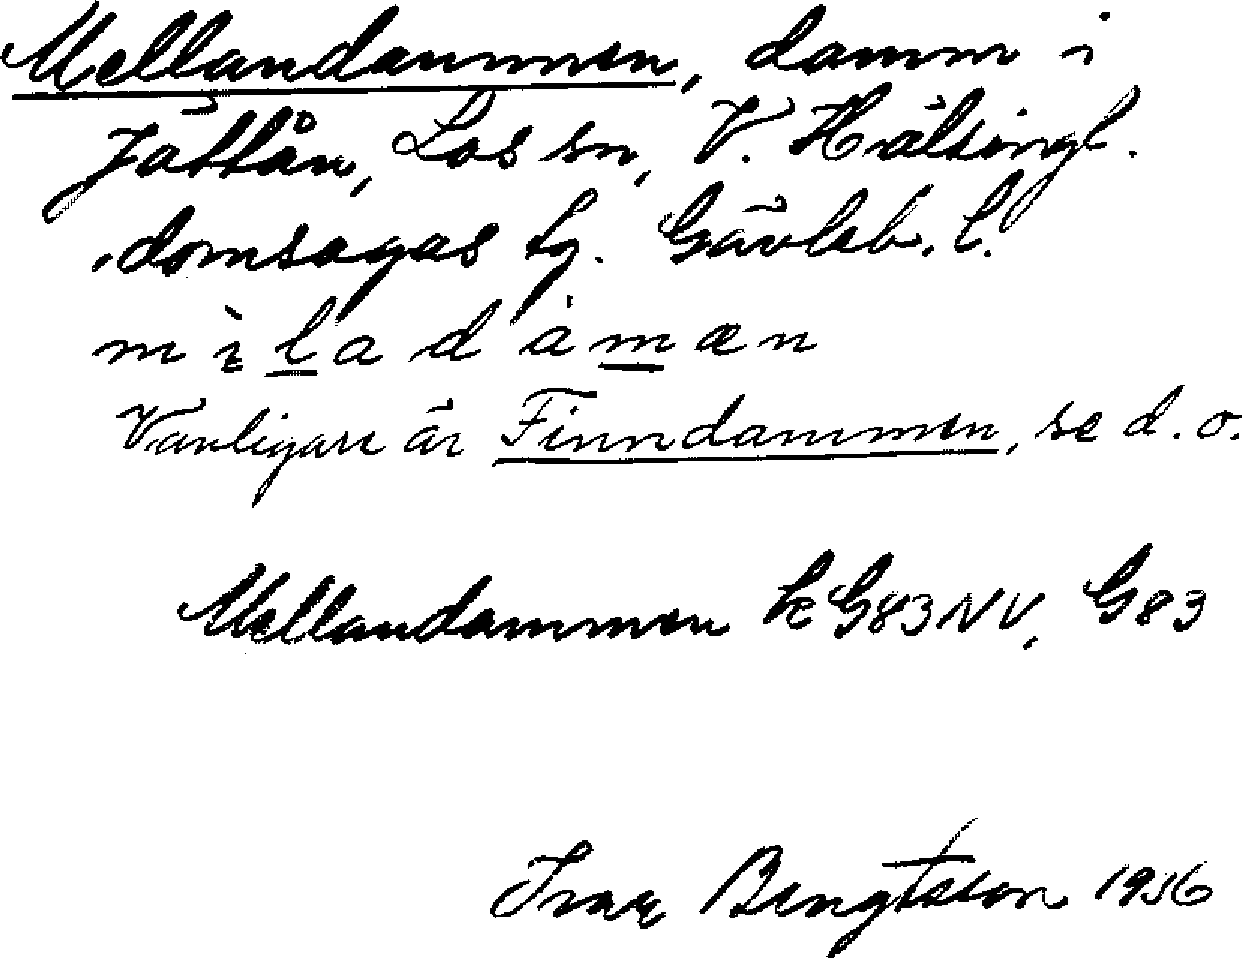 Mellandammen, damm i
Jättån, Los sn, V. Hälsingl.
domsagas tg. Gävleb. l.
m ì l a d a m æ n
Vanligare är Finndammen, se d.o.
Mellandammen k G83NV, G83
Ivar Bengtsson 1936